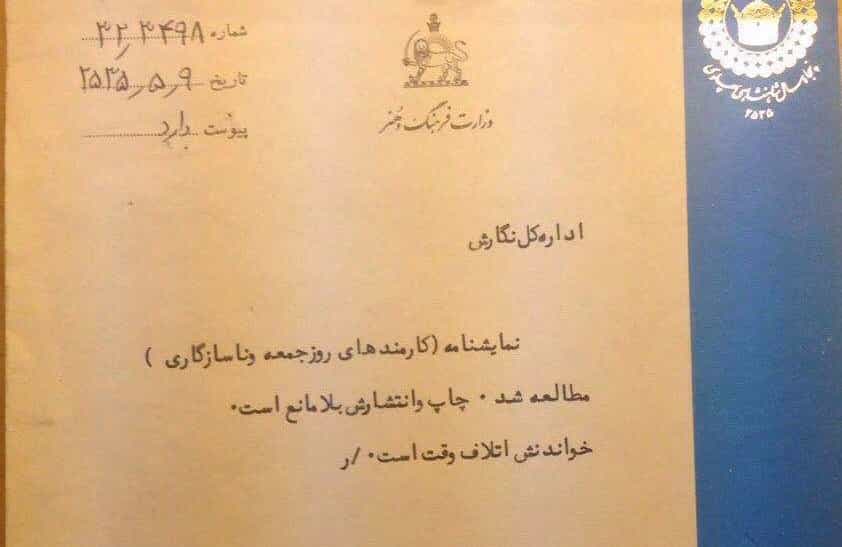 شماره ۳۲٫۳۴۹۸
تاریخ ۲۵۳۵٫۵٫۹
پیوست دارد
وزارت فرهنگ و هنر
پنجاه سال شاهنشاهی پهلوی
۲۵۳۵
اداره کل نگارش
نمایشنامه (کارمندهای روز جمعه وناسازگاری )
مطالعه شد . چاپ وانتشارش بلامانع است.
خواندنش اتلاف وقت است. /ر